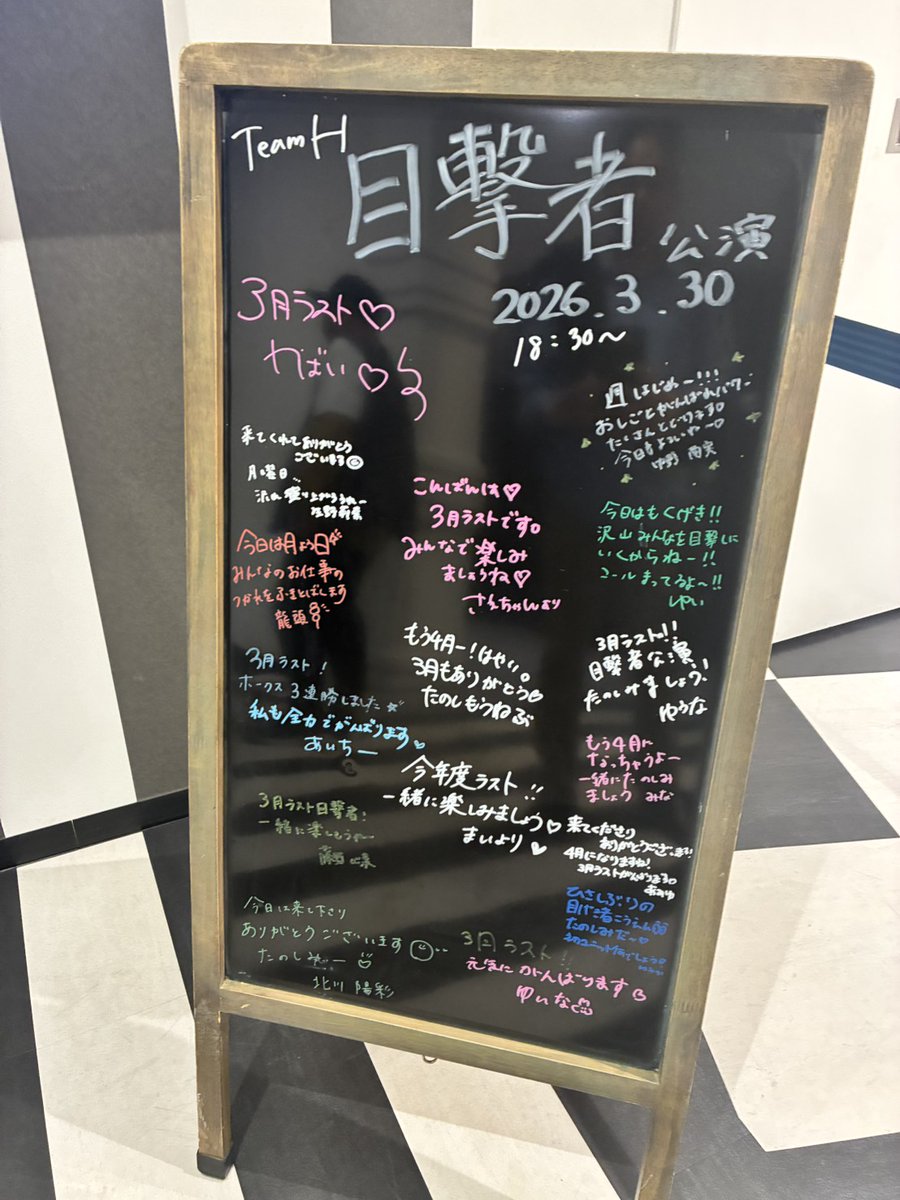 Team H
目撃者 公演
2026.3.30
18:30〜
3月ラスト♡
やばい♡
月はじめー!!!
おしごとがんばれパワー
たくさんとどけます。
今日もよろしくねー♡
来てくれてありがとう
ございます☺
月曜日
沢山盛り上がろうねー
今日は月よう日
みんなのお仕事の
つかれをふきとばします
龍頭
こんばんは♡
3月ラストです。
みんなで楽しみ
ましょうね♡
さえちゃんより
今日はもくげき!!
沢山みんなを目撃しに
いくからねー!!
コールまってるよ〜!!
ゆい
3月ラスト!
ホークス3連勝しました☆
私も全力でがんばります
あいちー
もう4月ー!はやい。
3月もありがとう♡
たのしもうね
3月ラスト!!
目撃者公演
たのしみましょう!
ゆうな
もう4月に
なっちゃうよー
一緒にたのしみ
ましょう みな
今年度ラスト!!
一緒に楽しみましょう♡
まいより♥
3月ラスト目撃者!
一緒に楽しもうねー
来てくださり
ありがとうございます!
4月になりますね!
3月ラストがんばります
ひさしぶりの
目撃者こうえん
たのしみだ〜♡
今日は来て下さり
ありがとうございます☺
たのしみー
北川 陽彩
3月ラスト!!
元気にがんばります
ゆいな